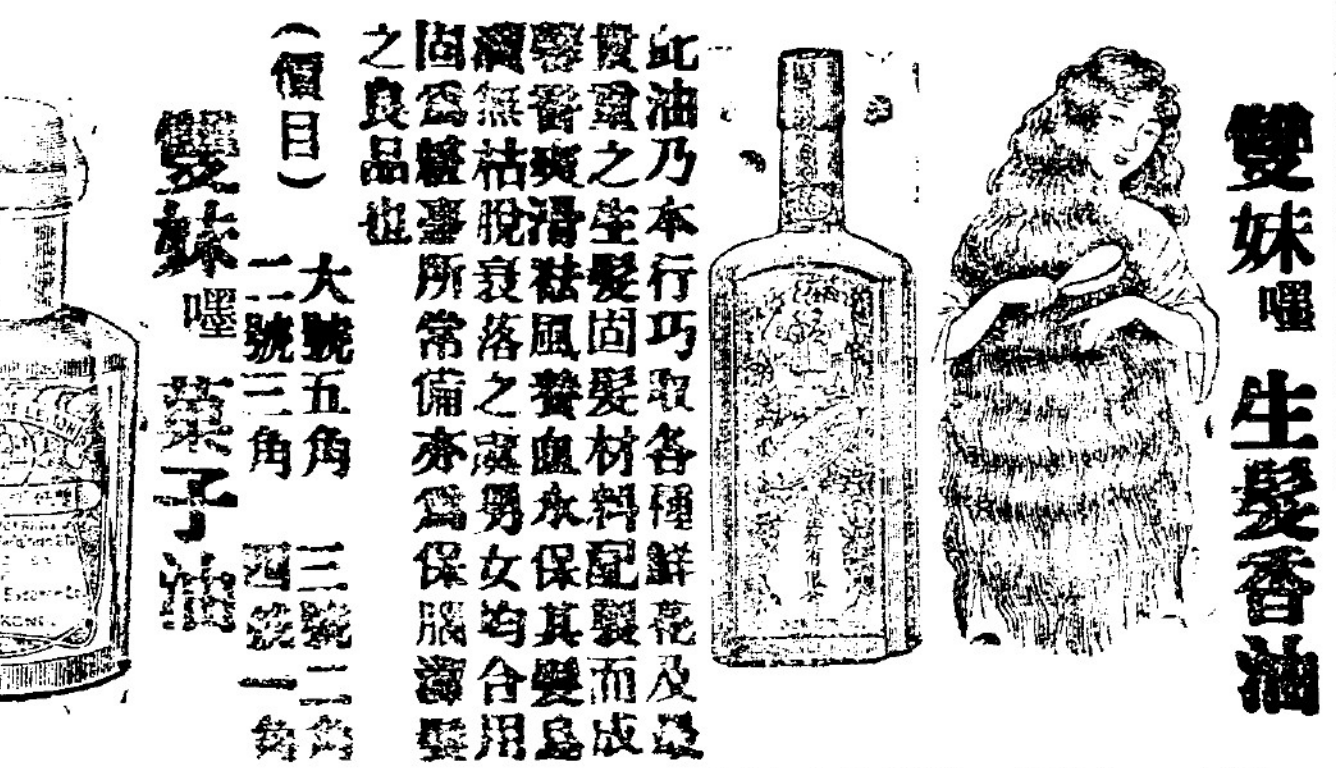 雙妹嚜 生髮香油
此油乃本行巧取各種鮮花及最
貴重之生髮固髮材料配製而成
馨香爽滑祛風養血永保其髮烏
潤無枯脫衰落之虞男女均合用
固為粧臺所常備亦為保腦澤髮
之良品也
(價目)
大號五角 三號二角
二號三角 四號一角
雙妹嚜 菓子露